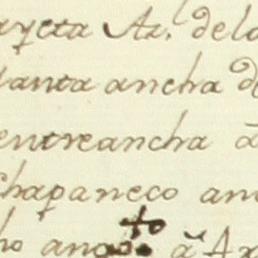 ayeta Az.l delo
anta ancha de
entreancha a
chapaneco an
ho ango